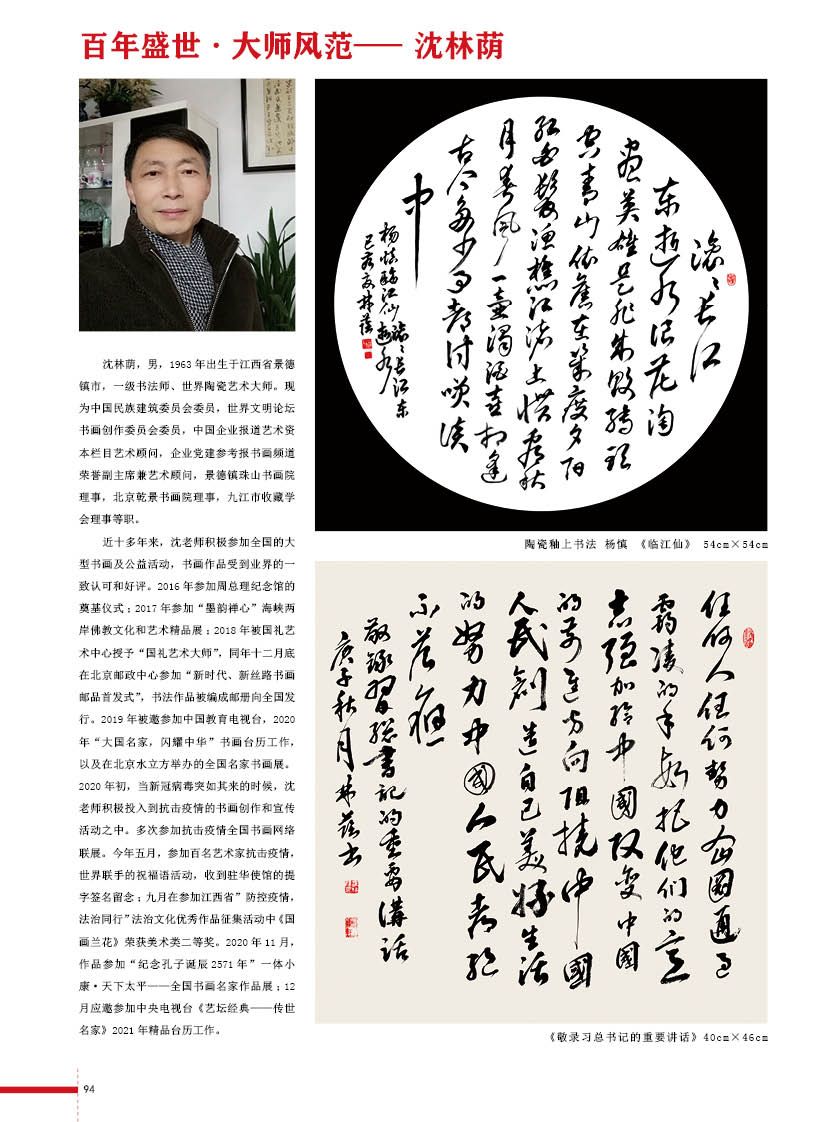 百年盛世·大师风范—— 沈林荫
沈林荫，男，1963 年出生于江西省景德
镇市，一级书法师、世界陶瓷艺术大师。现
为中国民族建筑委员会委员，世界文明论坛
书画创作委员会委员，中国企业报道艺术资
本栏目艺术顾问，企业党建参考报书画频道
荣誉副主席兼艺术顾问，景德镇珠山书画院
理事，北京乾景书画院理事，九江市收藏学
会理事等职。
近十多年来，沈老师积极参加全国的大
型书画及公益活动，书画作品受到业界的一
致认可和好评。2016 年参加周总理纪念馆的
奠基仪式；2017 年参加“墨韵禅心”海峡两
岸佛教文化和艺术精品展；2018 年被国礼艺
术中心授予“国礼艺术大师”，同年十二月底
在北京邮政中心参加“新时代、新丝路书画
邮品首发式”，书法作品被编成邮册向全国发
行。2019 年被邀参加中国教育电视台，2020
年“大国名家，闪耀中华”书画台历工作，
以及在北京水立方举办的全国名家书画展。
2020 年初，当新冠病毒突如其来的时候，沈
老师积极投入到抗击疫情的书画创作和宣传
活动之中。多次参加抗击疫情全国书画网络
联展。今年五月，参加百名艺术家抗击疫情，
世界联手的祝福语活动，收到驻华使馆的提
字签名留念；九月在参加江西省”防控疫情，
法治同行”法治文化优秀作品征集活动中《国
画兰花》荣获美术类二等奖。2020 年 11 月，
作品参加“纪念孔子诞辰 2571 年”一体小
康·天下太平——全国书画名家作品展；12
月应邀参加中央电视台《艺坛经典——传世
名家》2021 年精品台历工作。
滚滚长江
东逝水浪花淘
尽英雄是非成败转头
空青山依旧在几度夕阳
红白发渔樵江渚上惯看秋
月春风一壶浊酒喜相逢
古今多少事都付笑谈
中
杨慎临江仙滚滚长江东
逝水
己亥亥林荫
陶瓷釉上书法 杨慎 《临江仙》 54cm×54cm
任何人任何势力企图通过
霸凌的手段把他们的意
志强加给中国改变中国
的前进方向阻挠中国
人民创造自己美好生活
的努力中国人民都绝
不答应
敬录习总书记的重要讲话
庚子秋月林荫书
《敬录习总书记的重要讲话》40cm×46cm
94